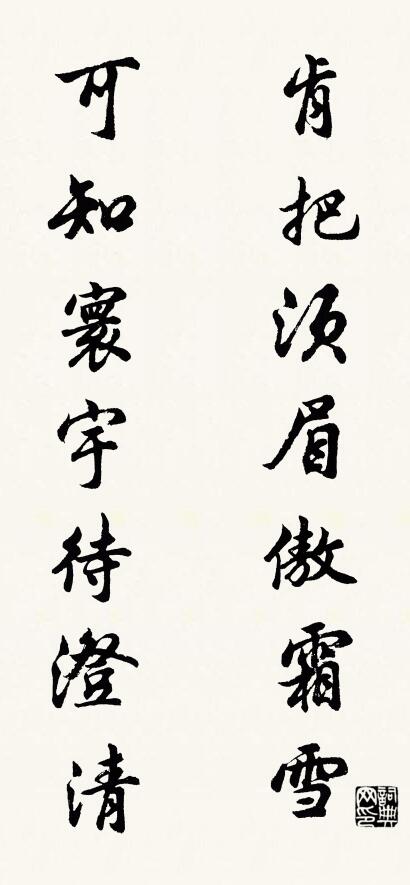 肯把须眉傲霜雪
可知寰宇待澄清
词典网印